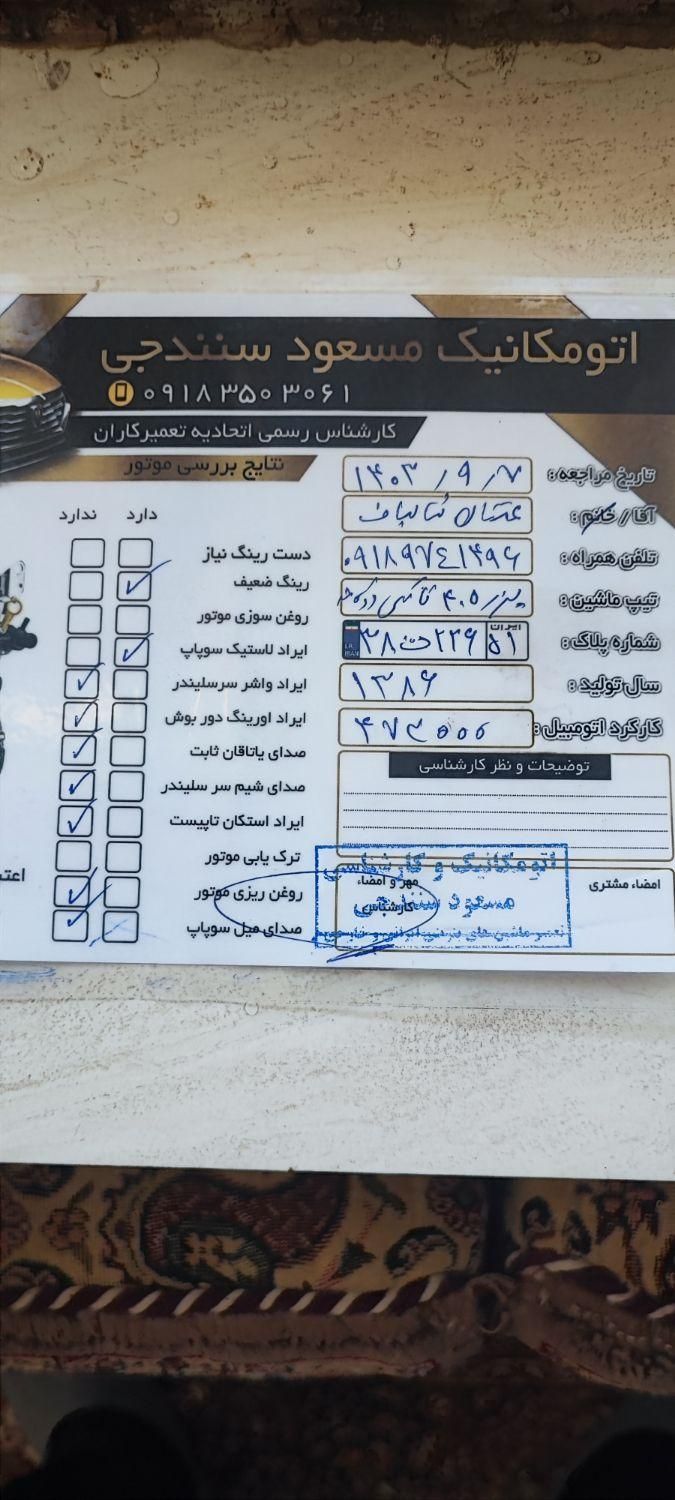 اتومکانیک مسعود سنندجی
۰۹۱۸ ۳۵۰ ۳۰۶۱
کارشناس رسمی اتحادیه تعمیرکاران
نتایج بررسی موتور
تاریخ مراجعه: ۱۴۰۳/۹/۷
آقا / خانم:
تلفن همراه: ۰۹۱۸۹۷۴۱۴۹۶
تیپ ماشین: ۴۰۵
شماره پلاک: ۳۸ ت ۲۲۶ ایران ۵۱
سال تولید: ۱۳۸۶
کارکرد اتومبیل: ۴۷۳۰۰۰
توضیحات و نظر کارشناسی
امضاء مشتری
مهر و امضاء
کارشناس
اتومکانیک و کارشناسی
مسعود سنندجی
دارد ندارد
دست رینگ نیاز
رینگ ضعیف
روغن سوزی موتور
ایراد لاستیک سوپاپ
ایراد واشر سرسلیندر
ایراد اورینگ دور بوش
صدای یاتاقان ثابت
صدای شیم سر سلیندر
ایراد استکان تاپیت
ترک یابی موتور
روغن ریزی موتور
صدای میل سوپاپ